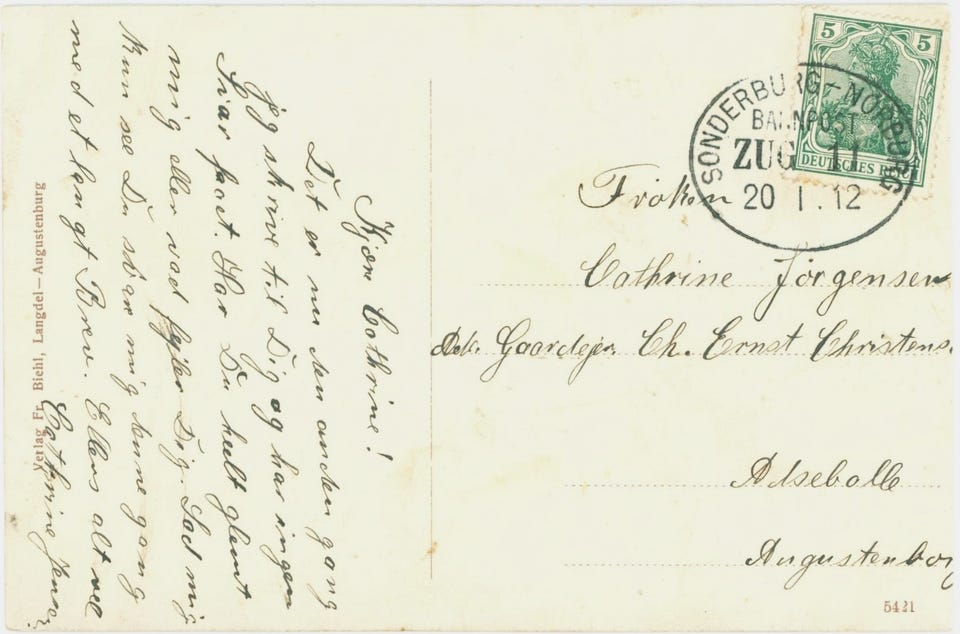 Kjære Cathrine!
Det er nu den anden gang
jeg skrive til Dig og har ingen
Svar faaet. Har Du heelt glemt
mig eller vad fejler Dig. Lad mig
Kun see Du svær mig denne gang
med et langt Brev. Ellers alt vel
Cathrine Jensen
Verlag Fr. Biehl, Langdel—Augustenburg
5 5
DEUTSCHES REICH
SONDERBURG-NORBURG
BAHNPOST
ZUG 11
20 1. 12
Fröken
Cathrine Jörgensen
Gaardejer Ch. Ernst Christens
Adsebolle
Augustenborg
5421